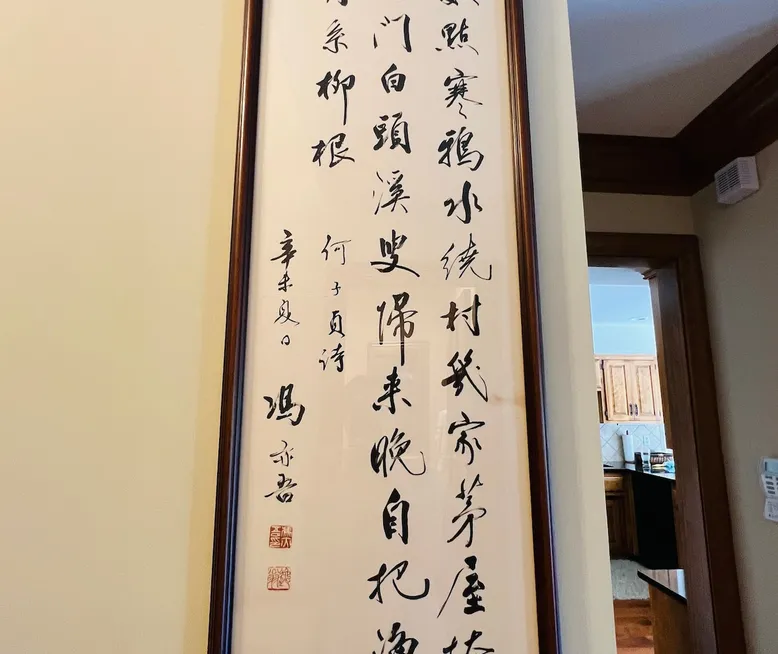 點寒鴉水繞村幾家茅屋
門白頭溪叟歸来晚自把漁
系柳根
何子貞詩
辛未夏日
馮亦吾